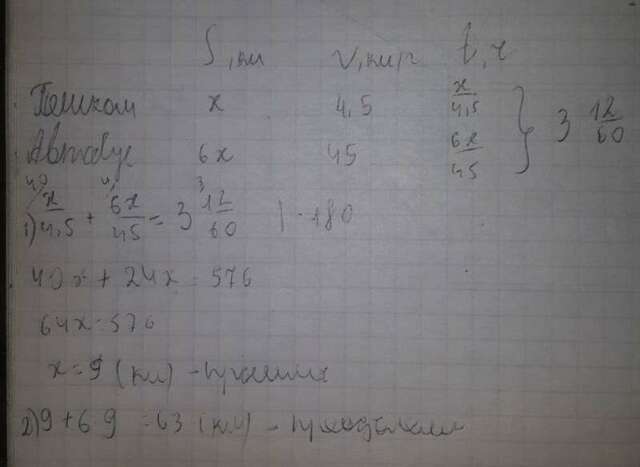 S, км V, км/ч t, ч
Пешком x 4,5 x/4,5
Автобус 6x 45 6x/45 } 3 12/60
40 4 3
1) x/4,5 + 6x/45 = 3 12/60 | · 180
40x + 24x = 576
64x = 576
x = 9 (км) - прошли
2) 9 + 6 9 = 63 (км) -